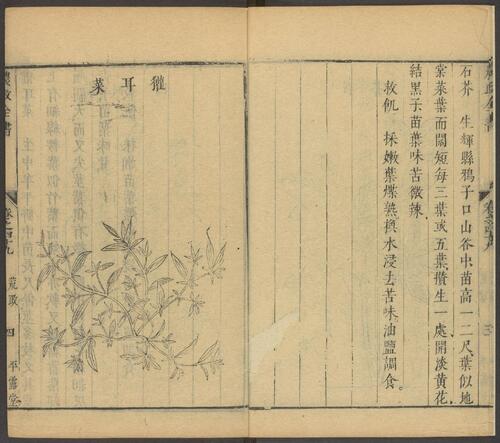 石芥 生輝縣鴉子口山谷中苗高一二尺葉似地
棠菜葉而闊短每三葉或五葉攢生一處開淡黃花
結黑子苗葉味苦微辣
救飢 採嫩葉煠熟換水浸去苦味油鹽調食
獾耳菜
農政全書
荒政 四 平露堂